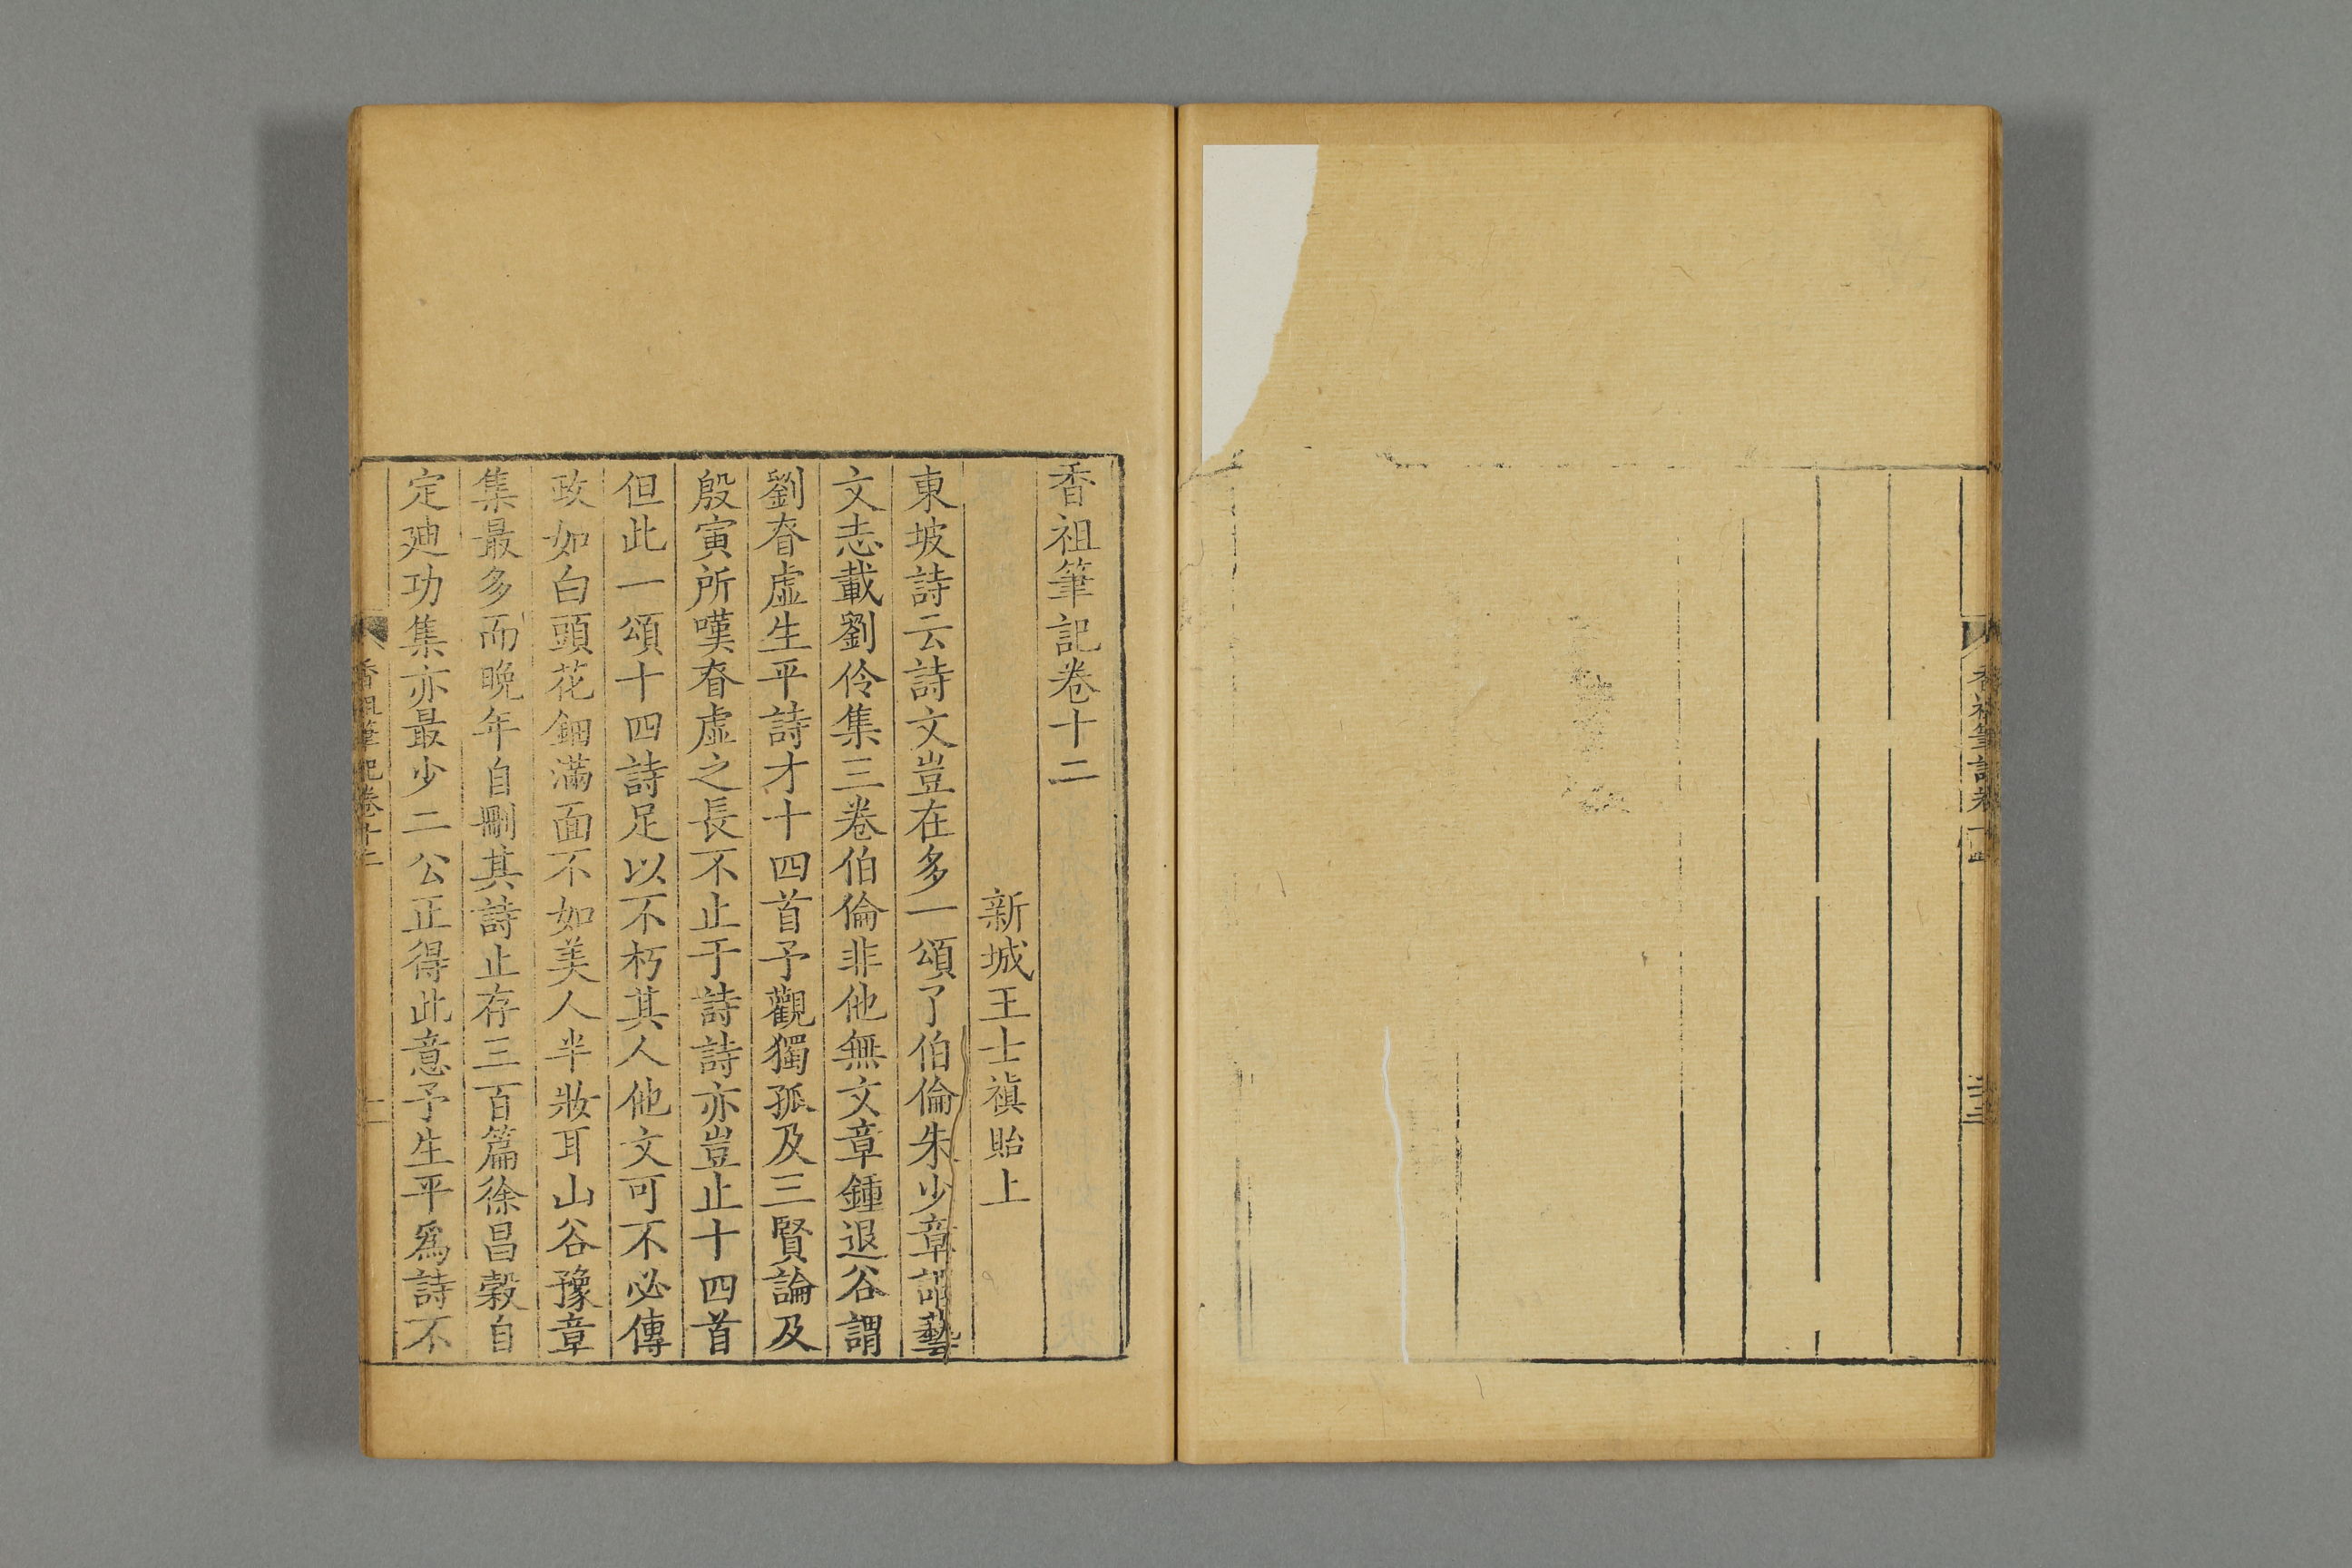 香祖筆記卷十二
新城王士禛貽上
東坡詩云詩文豈在多一頌了伯倫朱少章謂藝
文志載劉伶集三卷伯倫非他無文章鍾退谷謂
劉昚虛生平詩才十四首予觀獨孤及三賢論及
殷寅所嘆昚虛之長不止于詩詩亦豈止十四首
但此一頌十四詩足以不朽其人他文可不必傳
政如白頭花鈿滿面不如美人半妝耳山谷豫章
集最多而晚年自刪其詩止存三百篇徐昌穀自
定廸功集亦最少二公正得此意予生平爲詩不
香祖筆記卷十二